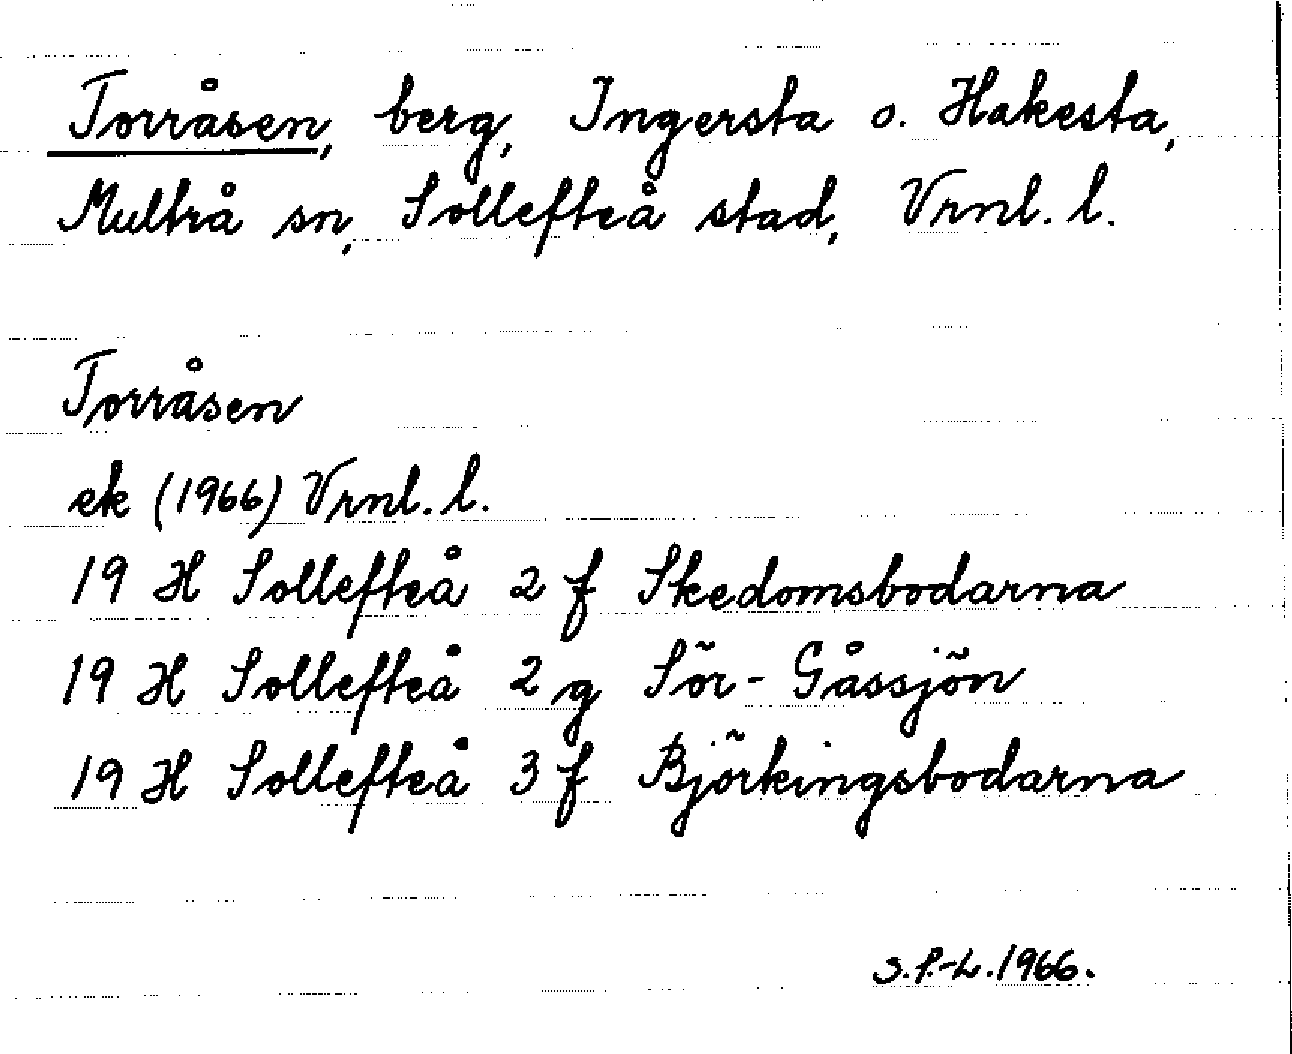 Torråsen, berg, Ingersta o. Hakesta,
Multrå sn, Sollefteå stad, Vrnl. l.
Torråsen
ek (1966) Vrnl. l.
19 H Sollefteå 2 f Skedomsbodarna
19 H Sollefteå 2 g Sör-Gåssjön
19 H Sollefteå 3 f Björkingsbodarna
S.P.-L. 1966.